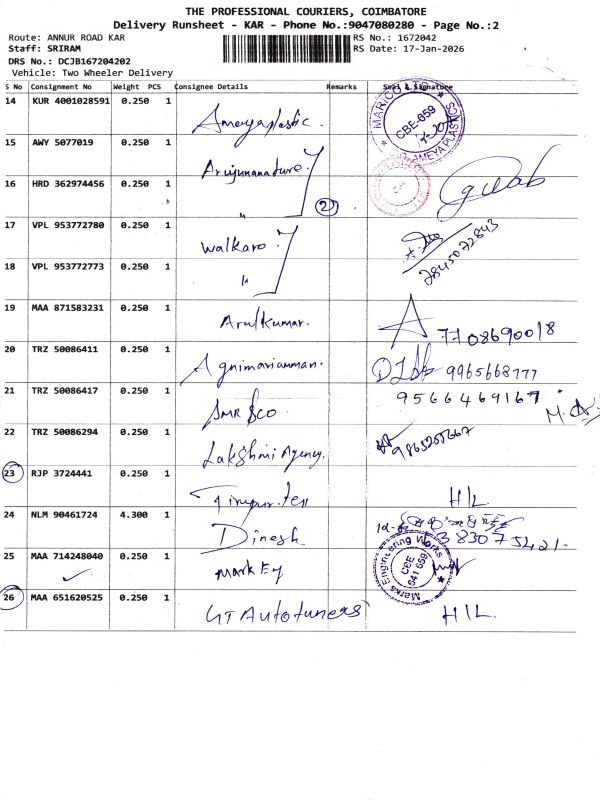 THE PROFESSIONAL COURIERS, COIMBATORE
Delivery Runsheet - KAR - Phone No.:9047080280 - Page No.:2
Route: ANNUR ROAD KAR RS No.: 1672042
Staff: SRIRAM RS Date: 17-Jan-2026
DRS No.: DCJB167204202
Vehicle: Two Wheeler Delivery
S No Consignment No Weight PCS Consignee Details Remarks Seal & Signature
14 KUR 4001028591 0.250 1 Ameyaplastic. MARICO CBE-659 AMEYA PLASTICS
15 AWY 5077019 0.250 1
16 HRD 362974456 0.250 1 " 2
17 VPL 953772780 0.250 1 Walkaro
18 VPL 953772773 0.250 1 " 7845072843
19 MAA 871583231 0.250 1 Arulkumar. 7708690018
20 TRZ 50086411 0.250 1 Agnimariamman. 9965668777
21 TRZ 50086417 0.250 1 SMR &CO 9566469167
22 TRZ 50086294 0.250 1 Lakshmi Agency.
23 RJP 3724441 0.250 1 H/L
24 NLM 90461724 4.300 1 Dinesh
25 MAA 714248040 0.250 1 Mark Ey Marks Engineering Works CBE 641 659
26 MAA 651620525 0.250 1 GT Autotuners H/L.